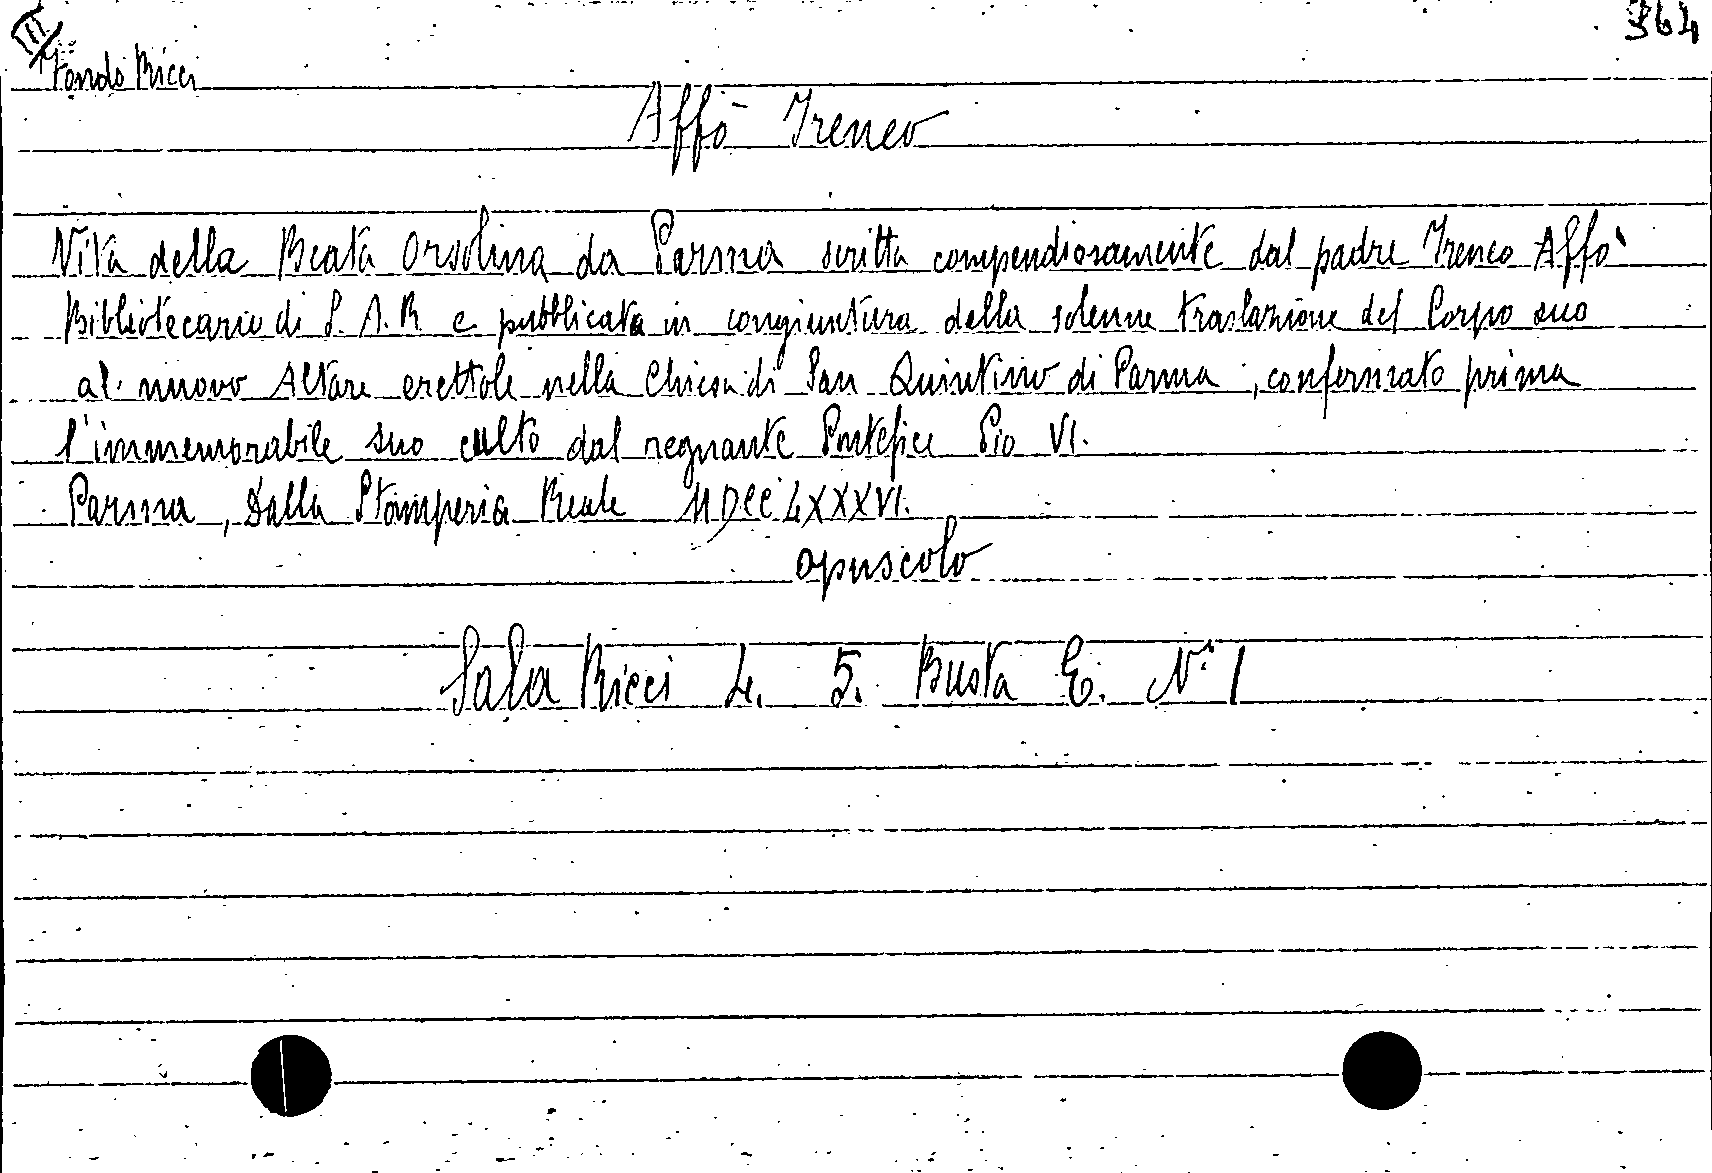 III
364
Fondo Ricci
Affò Ireneo
Vita della Beata Orsolina da Parma scritta compendiosamente dal padre Ireneo Affò
Bibliotecario di S.A.R e pubblicata in congiuntura della solenne traslazione del Corpo suo
al nuovo Altare erettole nella Chiesa di San Quintino di Parma, confermato prima
l'immemorabile suo culto dal regnante Pontefice Pio VI.
Parma, Dalla Stamperia Reale MDCCLXXXVI.
opuscolo
Sala Ricci 4. 5. Busta E. N° 1